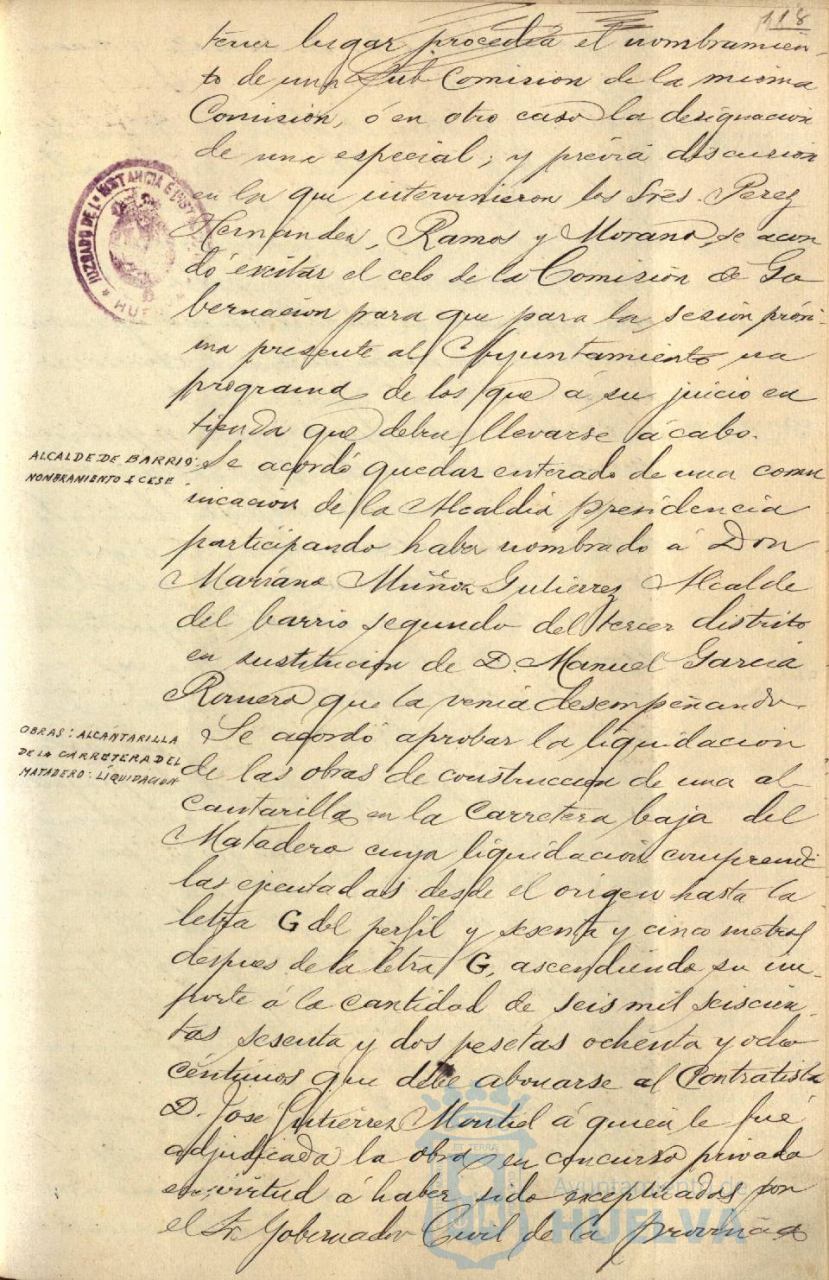 118
tener lugar procedia el nombramien-
to de una Sub Comision de la misma
Comision, ó en otro caso la designacion
de una especial; y prévia discusion
en la que intervinieron los Sres. Perez
Hernandez, Ramos y Morano, se acor
dó excitar el celo de la Comision de Go
bernacion para que para la sesion próxi
ma presente al Ayuntamiento un
programa de los que á su juicio en
tienda que deben llevarse á cabo.
ALCALDE DE BARRIO:
NOMBRAMIENTO Y CESE
Se acordó quedar enterado de una comu
nicacion de la Alcaldia presidencia
participando haber nombrado á Don
Mariano Muñoz Gutiérrez Alcalde
del barrio segundo del tercer distrito
en sustitucion de D. Manuel Garcia
Romero que la venia desempeñando.
OBRAS: ALCANTARILLA
DE LA CARRETERA DEL
MATADERO: LIQUIDACION
Se acordó aprobar la liquidacion
de las obras de construccion de una al-
cantarilla en la Carretera baja del
Matadero cuya liquidacion comprende
las ejecutadas desde el origen hasta la
letra G del perfil y sesenta y cinco metros
despues de la letra G, ascendiendo su im-
porte á la cantidad de seis mil seiscien-
tas sesenta y dos pesetas ochenta y ocho
céntimos que debe abonarse al Contratista
D. José Gutiérrez Montiel á quien le fué
adjudicada la obra en concurso privado
en virtud á haber sido exceptuadas por
el Sr. Gobernador Civil de la provincia
JUZGADO DE 1ª INSTANCIA E INST
HUE
Ayuntamiento de
HUELVA